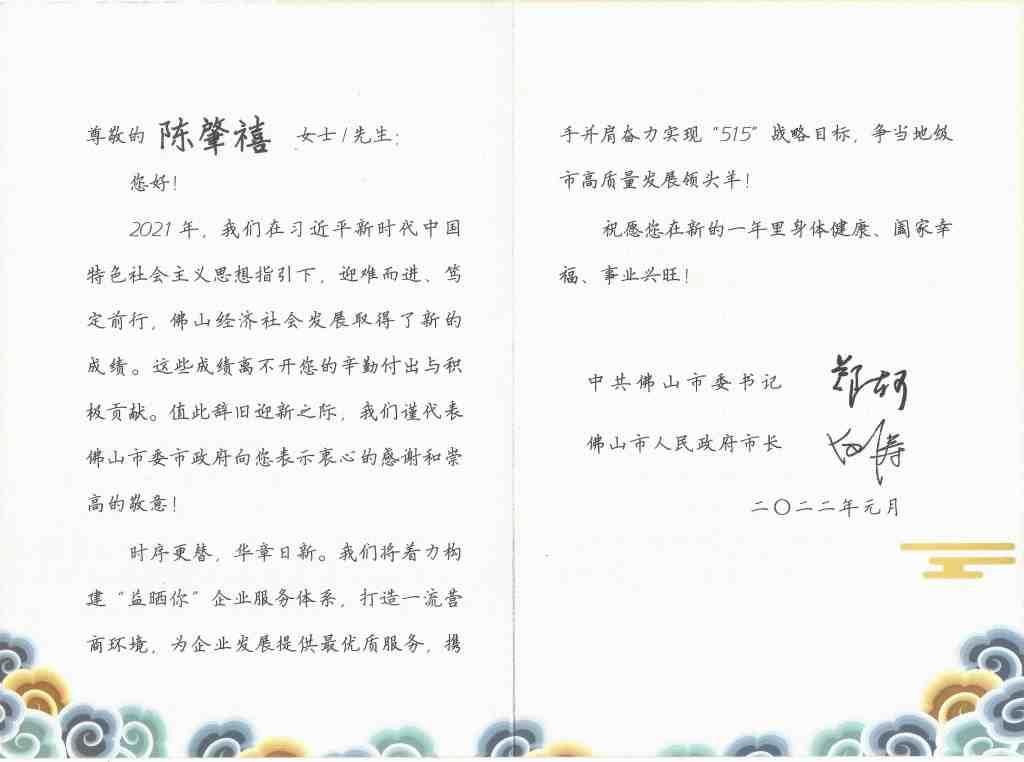 尊敬的 陈肇禧 女士/先生：
您好！
2021年，我们在习近平新时代中国
特色社会主义思想指引下，迎难而进、笃
定前行，佛山经济社会发展取得了新的
成绩。这些成绩离不开您的辛勤付出与积
极贡献。值此辞旧迎新之际，我们谨代表
佛山市委市政府向您表示衷心的感谢和崇
高的敬意！
时序更替，华章日新。我们将着力构
建“益晒你”企业服务体系，打造一流营
商环境，为企业发展提供最优质服务，携
手并肩奋力实现“515”战略目标，争当地级
市高质量发展领头羊！
祝愿您在新的一年里身体健康、阖家幸
福、事业兴旺！
中共佛山市委书记 郑轲
佛山市人民政府市长 白涛
二〇二二年元月